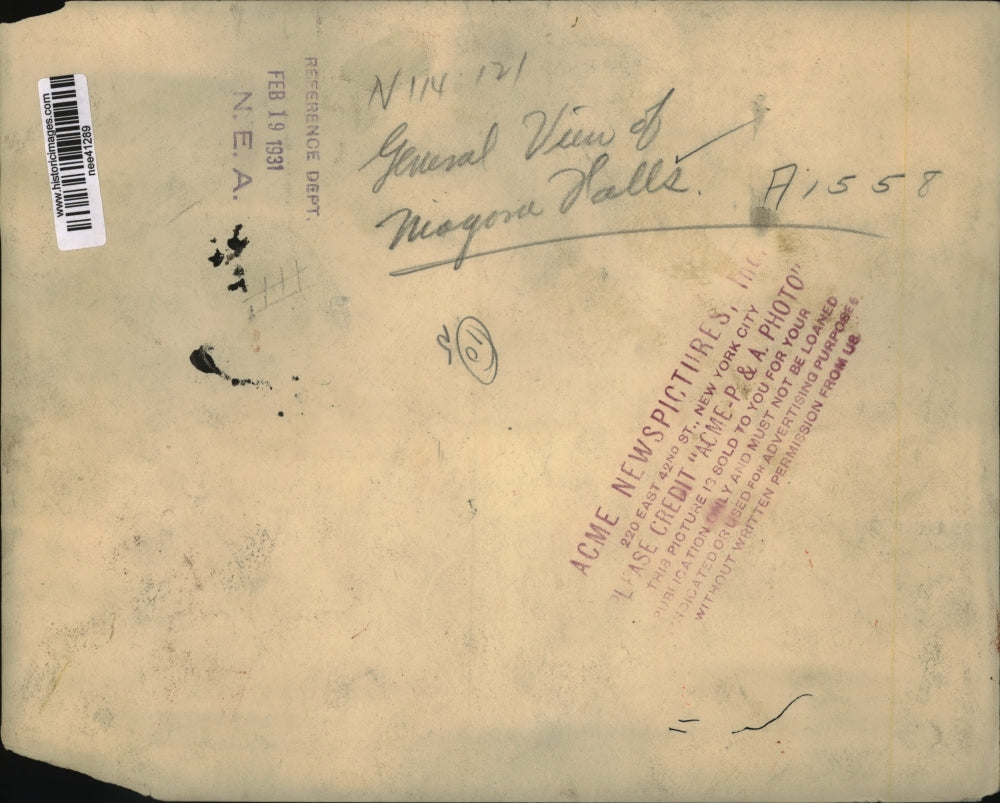 www.historicimages.com
nee41289
REFERENCE DEPT.
FEB 19 1931
N. E. A.
N 114 121
General View of
Niagara Falls.
A1558
10
ACME NEWSPICTURES, Inc.
220 EAST 42ND ST., NEW YORK CITY
PLEASE CREDIT "ACME-P. & A. PHOTO"
THIS PICTURE IS SOLD TO YOU FOR YOUR
PUBLICATION ONLY AND MUST NOT BE LOANED
INDICATED OR USED FOR ADVERTISING PURPOSES
WITHOUT WRITTEN PERMISSION FROM US